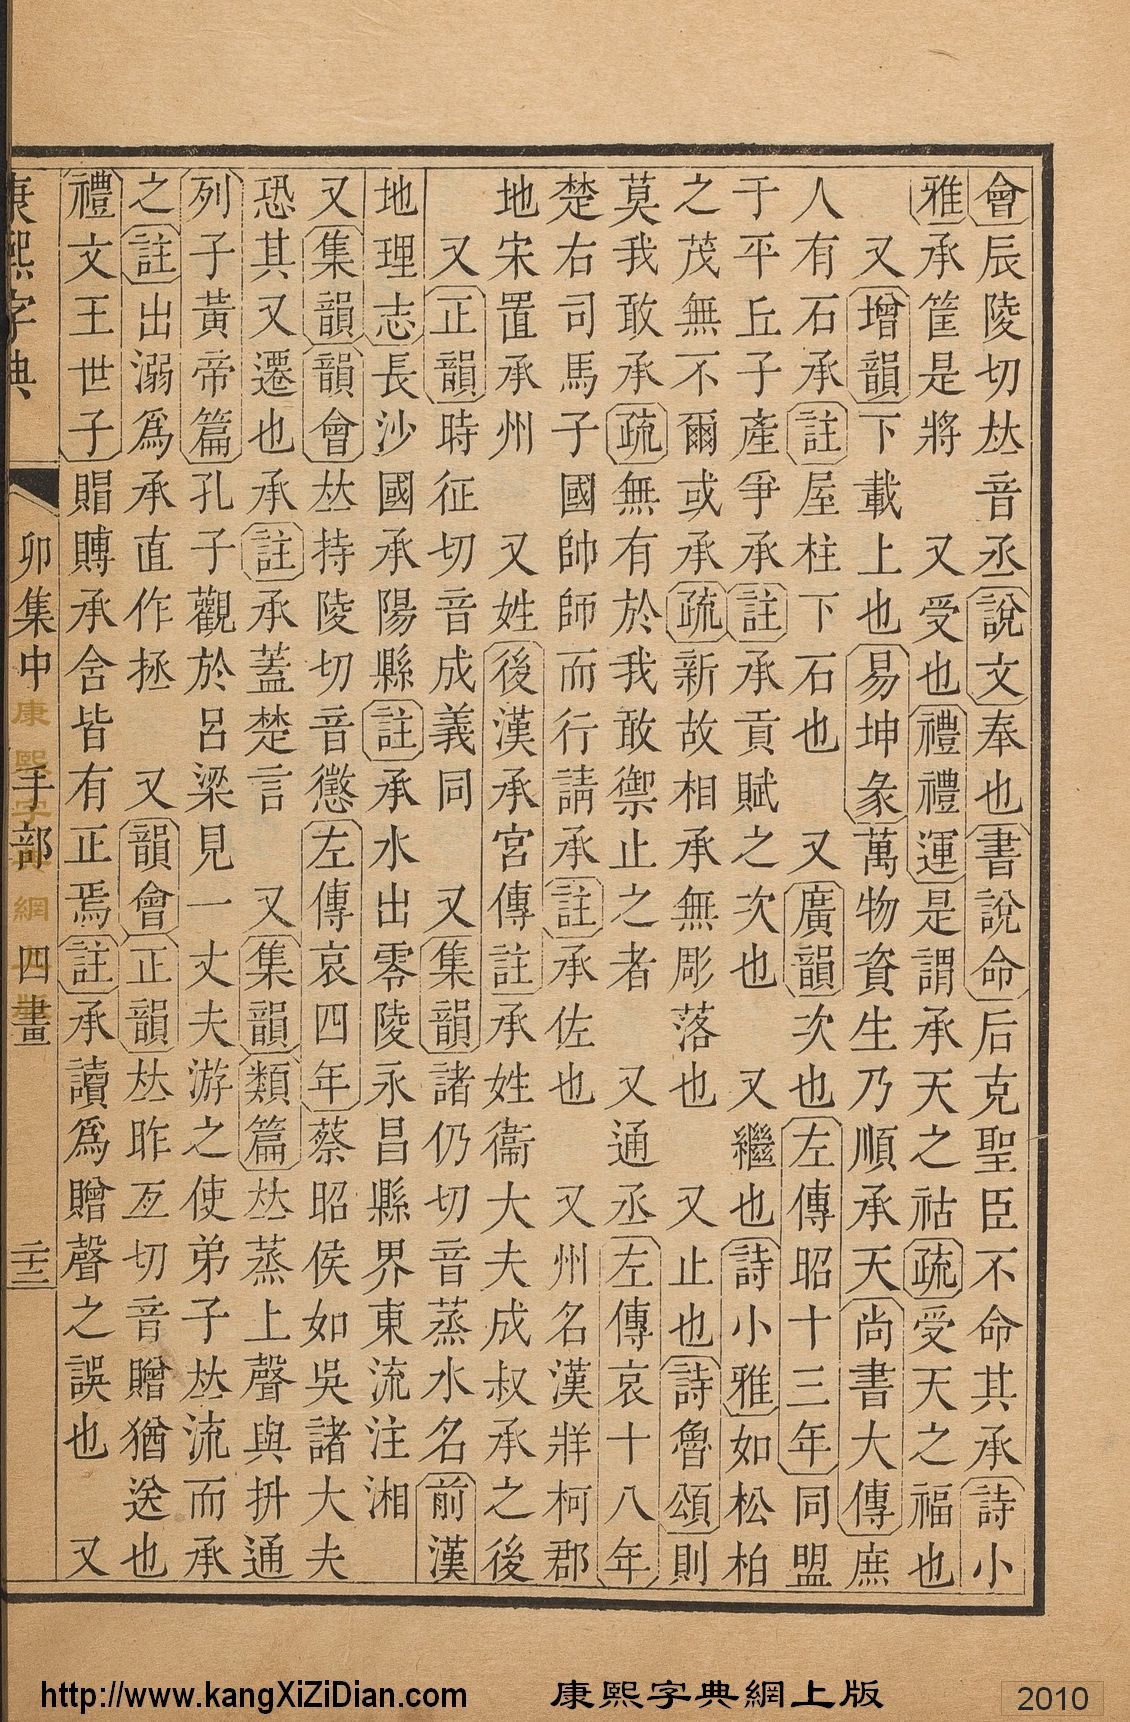 會辰陵切𠀤音丞說文奉也書說命后克聖臣不命其承詩小
雅承筐是將　又受也禮禮運是謂承天之祜疏受天之福也
又增韻下載上也易坤彖萬物資生乃順承天尚書大傳庶
人有石承註屋柱下石也　又廣韻次也左傳昭十三年同盟
于平丘子產爭承註承貢賦之次也　又繼也詩小雅如松柏
之茂無不爾或承疏新故相承無彫落也　又止也詩魯頌則
莫我敢承疏無有於我敢禦止之者　又通丞左傳哀十八年
楚右司馬子國帥師而行請承註承佐也　又州名漢牂柯郡
地宋置承州　又姓後漢承宮傳註承姓衞大夫成叔承之後
又正韻時征切音成義同　又集韻諸仍切音蒸水名前漢
地理志長沙國承陽縣註承水出零陵永昌縣界東流注湘
又集韻韻會𠀤持陵切音懲左傳哀四年蔡昭侯如吳諸大夫
恐其又遷也承註承蓋楚言　又集韻類篇𠀤蒸上聲與抍通
列子黃帝篇孔子觀於呂梁見一丈夫游之使弟子𠀤流而承
之註出溺爲承直作拯　又韻會正韻𠀤昨亙切音贈猶送也
禮文王世子賵賻承含皆有正焉註承讀爲贈聲之誤也　又
康熙字典　卯集中　手部　四畫　二十二
康熙字典網上版
http://www.kangXiZiDian.com　康熙字典網上版　2010